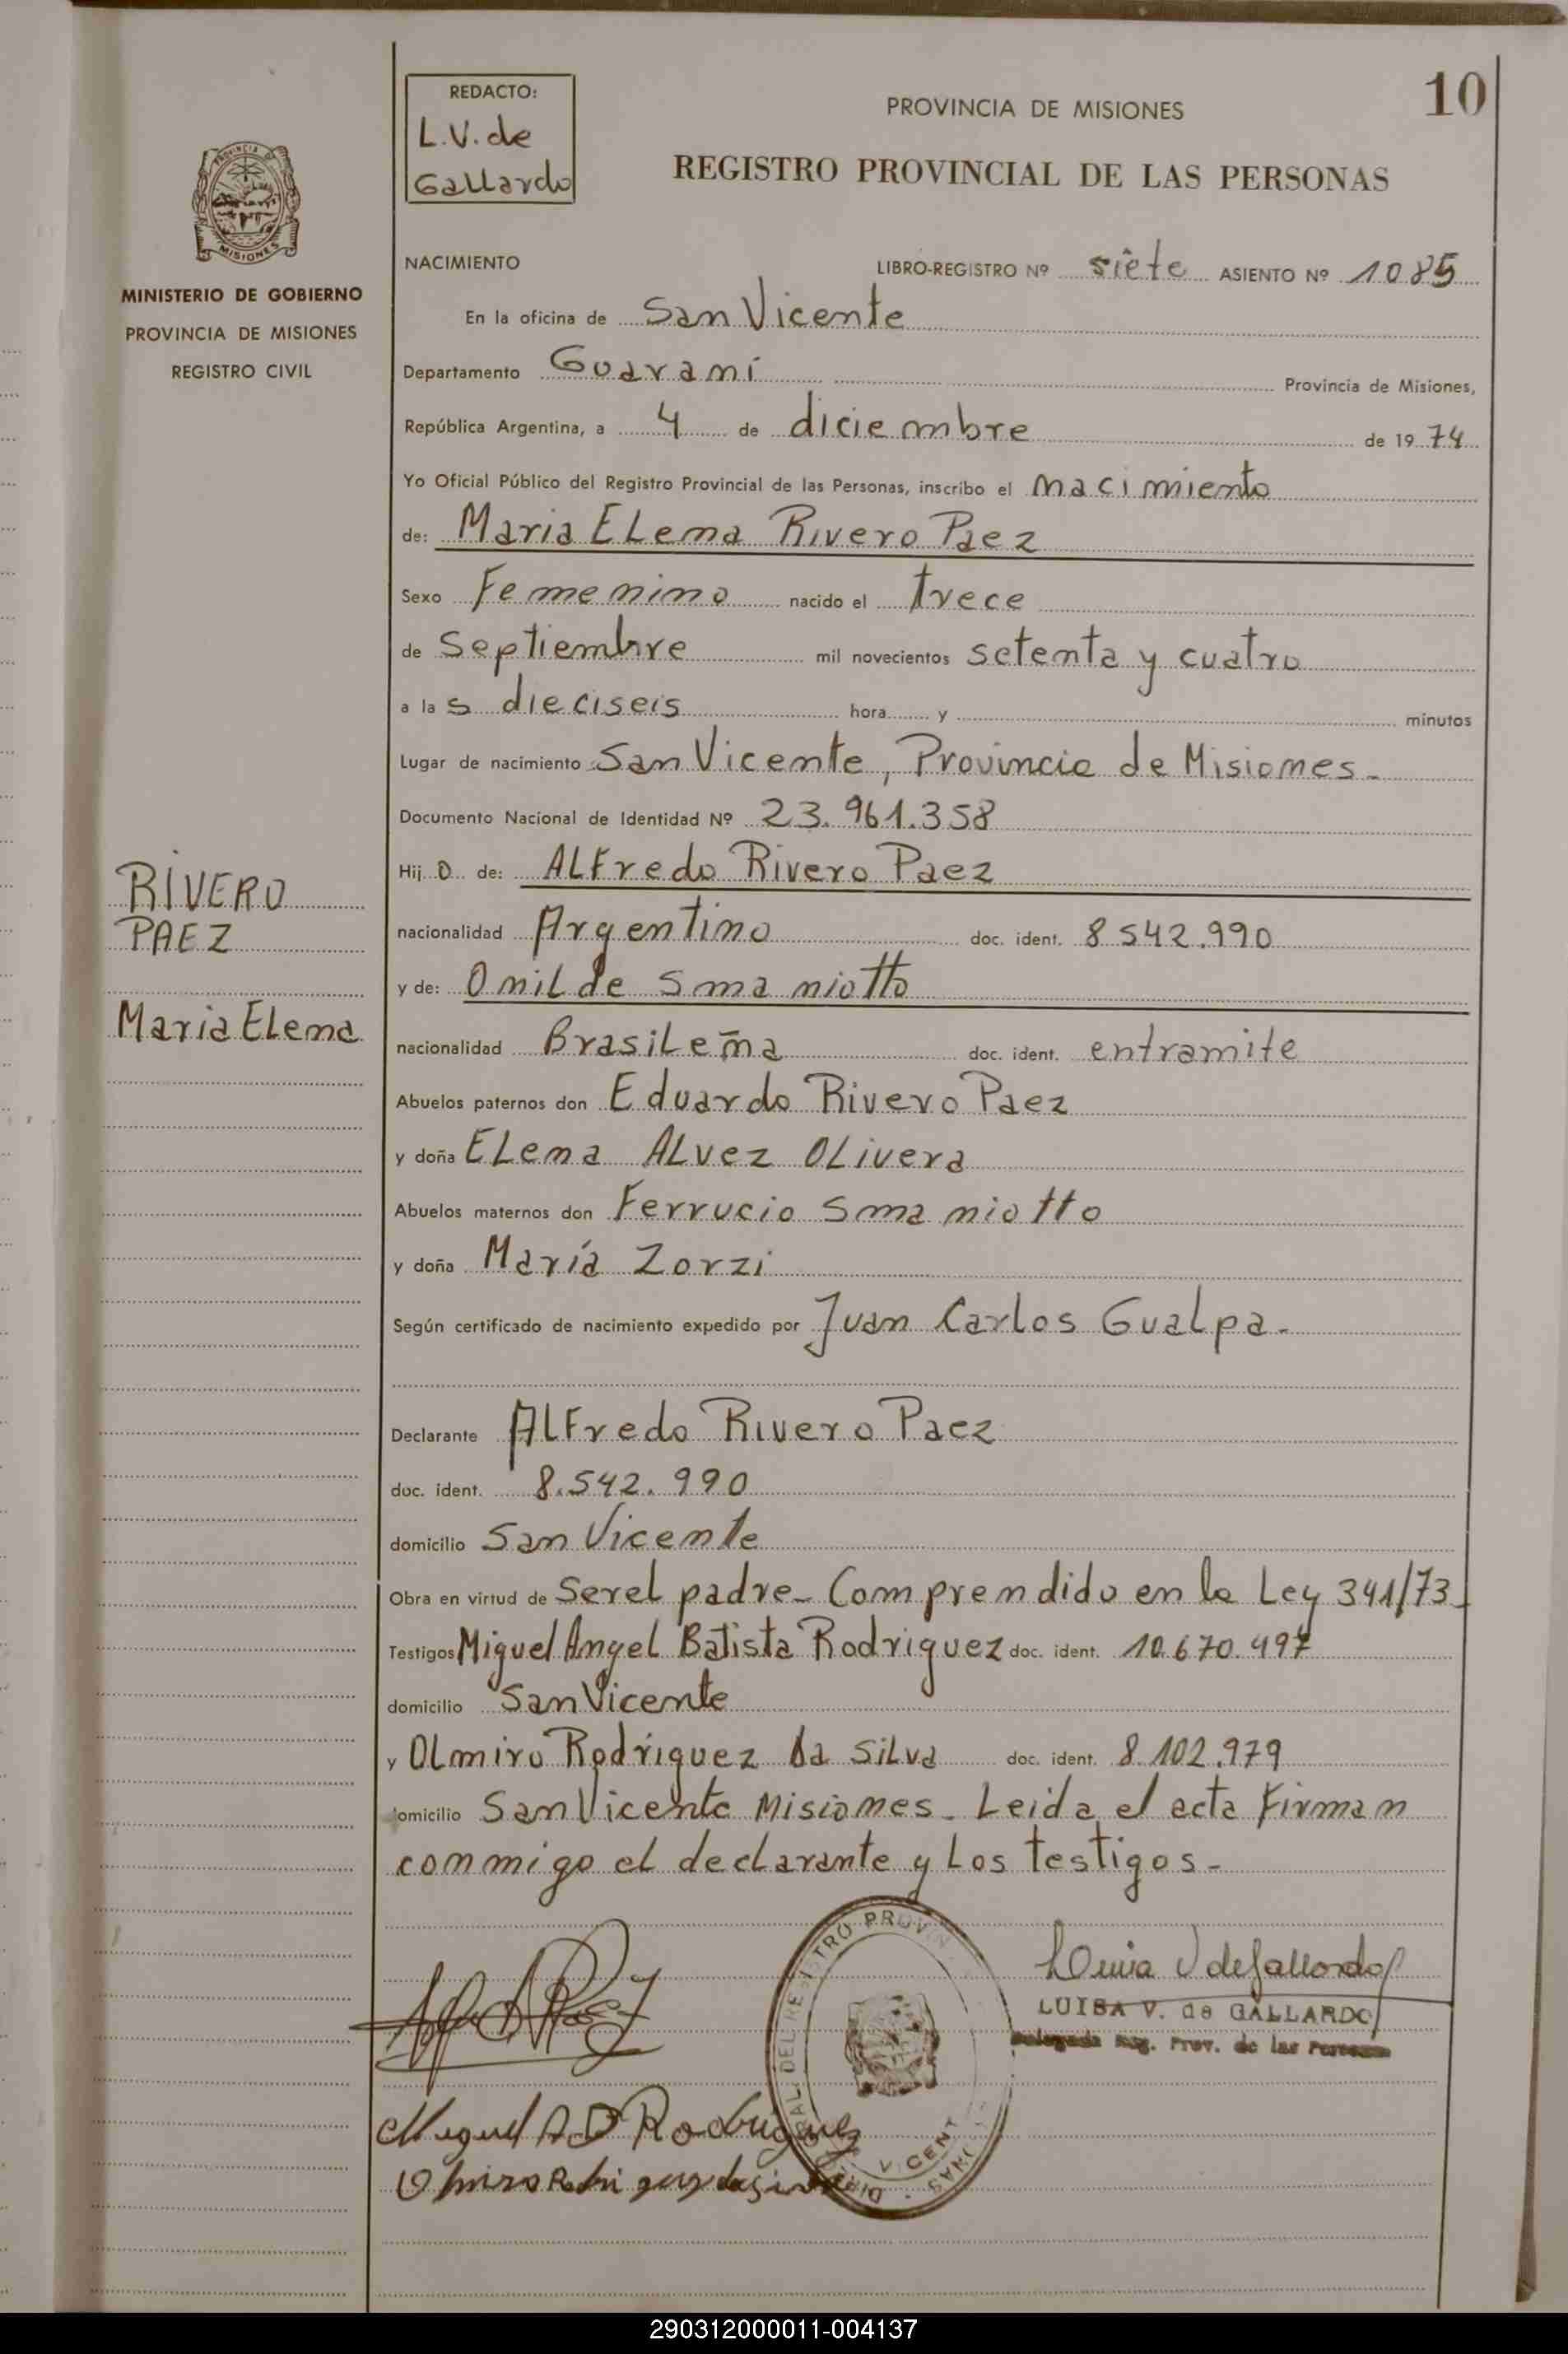 10
REDACTO:
L.V. de
Gallardo
PROVINCIA DE MISIONES
REGISTRO PROVINCIAL DE LAS PERSONAS
PROVINCIA DE
MISIONES
MINISTERIO DE GOBIERNO
PROVINCIA DE MISIONES
REGISTRO CIVIL
NACIMIENTO
LIBRO-REGISTRO Nº siete ASIENTO Nº 1085
En la oficina de San Vicente
Departamento Guaraní Provincia de Misiones,
República Argentina, a 4 de diciembre de 1974
Yo Oficial Público del Registro Provincial de las Personas, inscribo el nacimiento
de: Maria Elena Rivero Paez
Sexo Femenino nacido el trece
de Septiembre mil novecientos setenta y cuatro
a las dieciseis hora y minutos
Lugar de nacimiento San Vicente, Provincia de Misiones-
Documento Nacional de Identidad Nº 23.961.358
Hij o de: Alfredo Rivero Paez
RIVERO
PAEZ
Maria Elena
nacionalidad Argentino doc. ident. 8.542.990
y de: Onilde Smaniotto
nacionalidad Brasileña doc. ident. entramite
Abuelos paternos don Eduardo Rivero Paez
y doña Elena Alvez Olivera
Abuelos maternos don Ferrucio Smaniotto
y doña María Zorzi
Según certificado de nacimiento expedido por Juan Carlos Gualpa-
Declarante Alfredo Rivero Paez
doc. ident. 8.542.990
domicilio San Vicente
Obra en virtud de Ser el padre- Comprendido en la Ley 341/73-
Testigos Miguel Angel Batista Rodriguez doc. ident. 10.670.497
domicilio San Vicente
y Olmiro Rodriguez Da Silva doc. ident. 8.102.979
domicilio San Vicente Misiones- Leida el acta firman
conmigo el declarante y los testigos-
Luisa V de Gallardo
LUISA V. de GALLARDO
Delegada Reg. Prov. de las Personas
Miguel A B Rodriguez
Olmiro Rodriguez da Silva
290312000011-004137